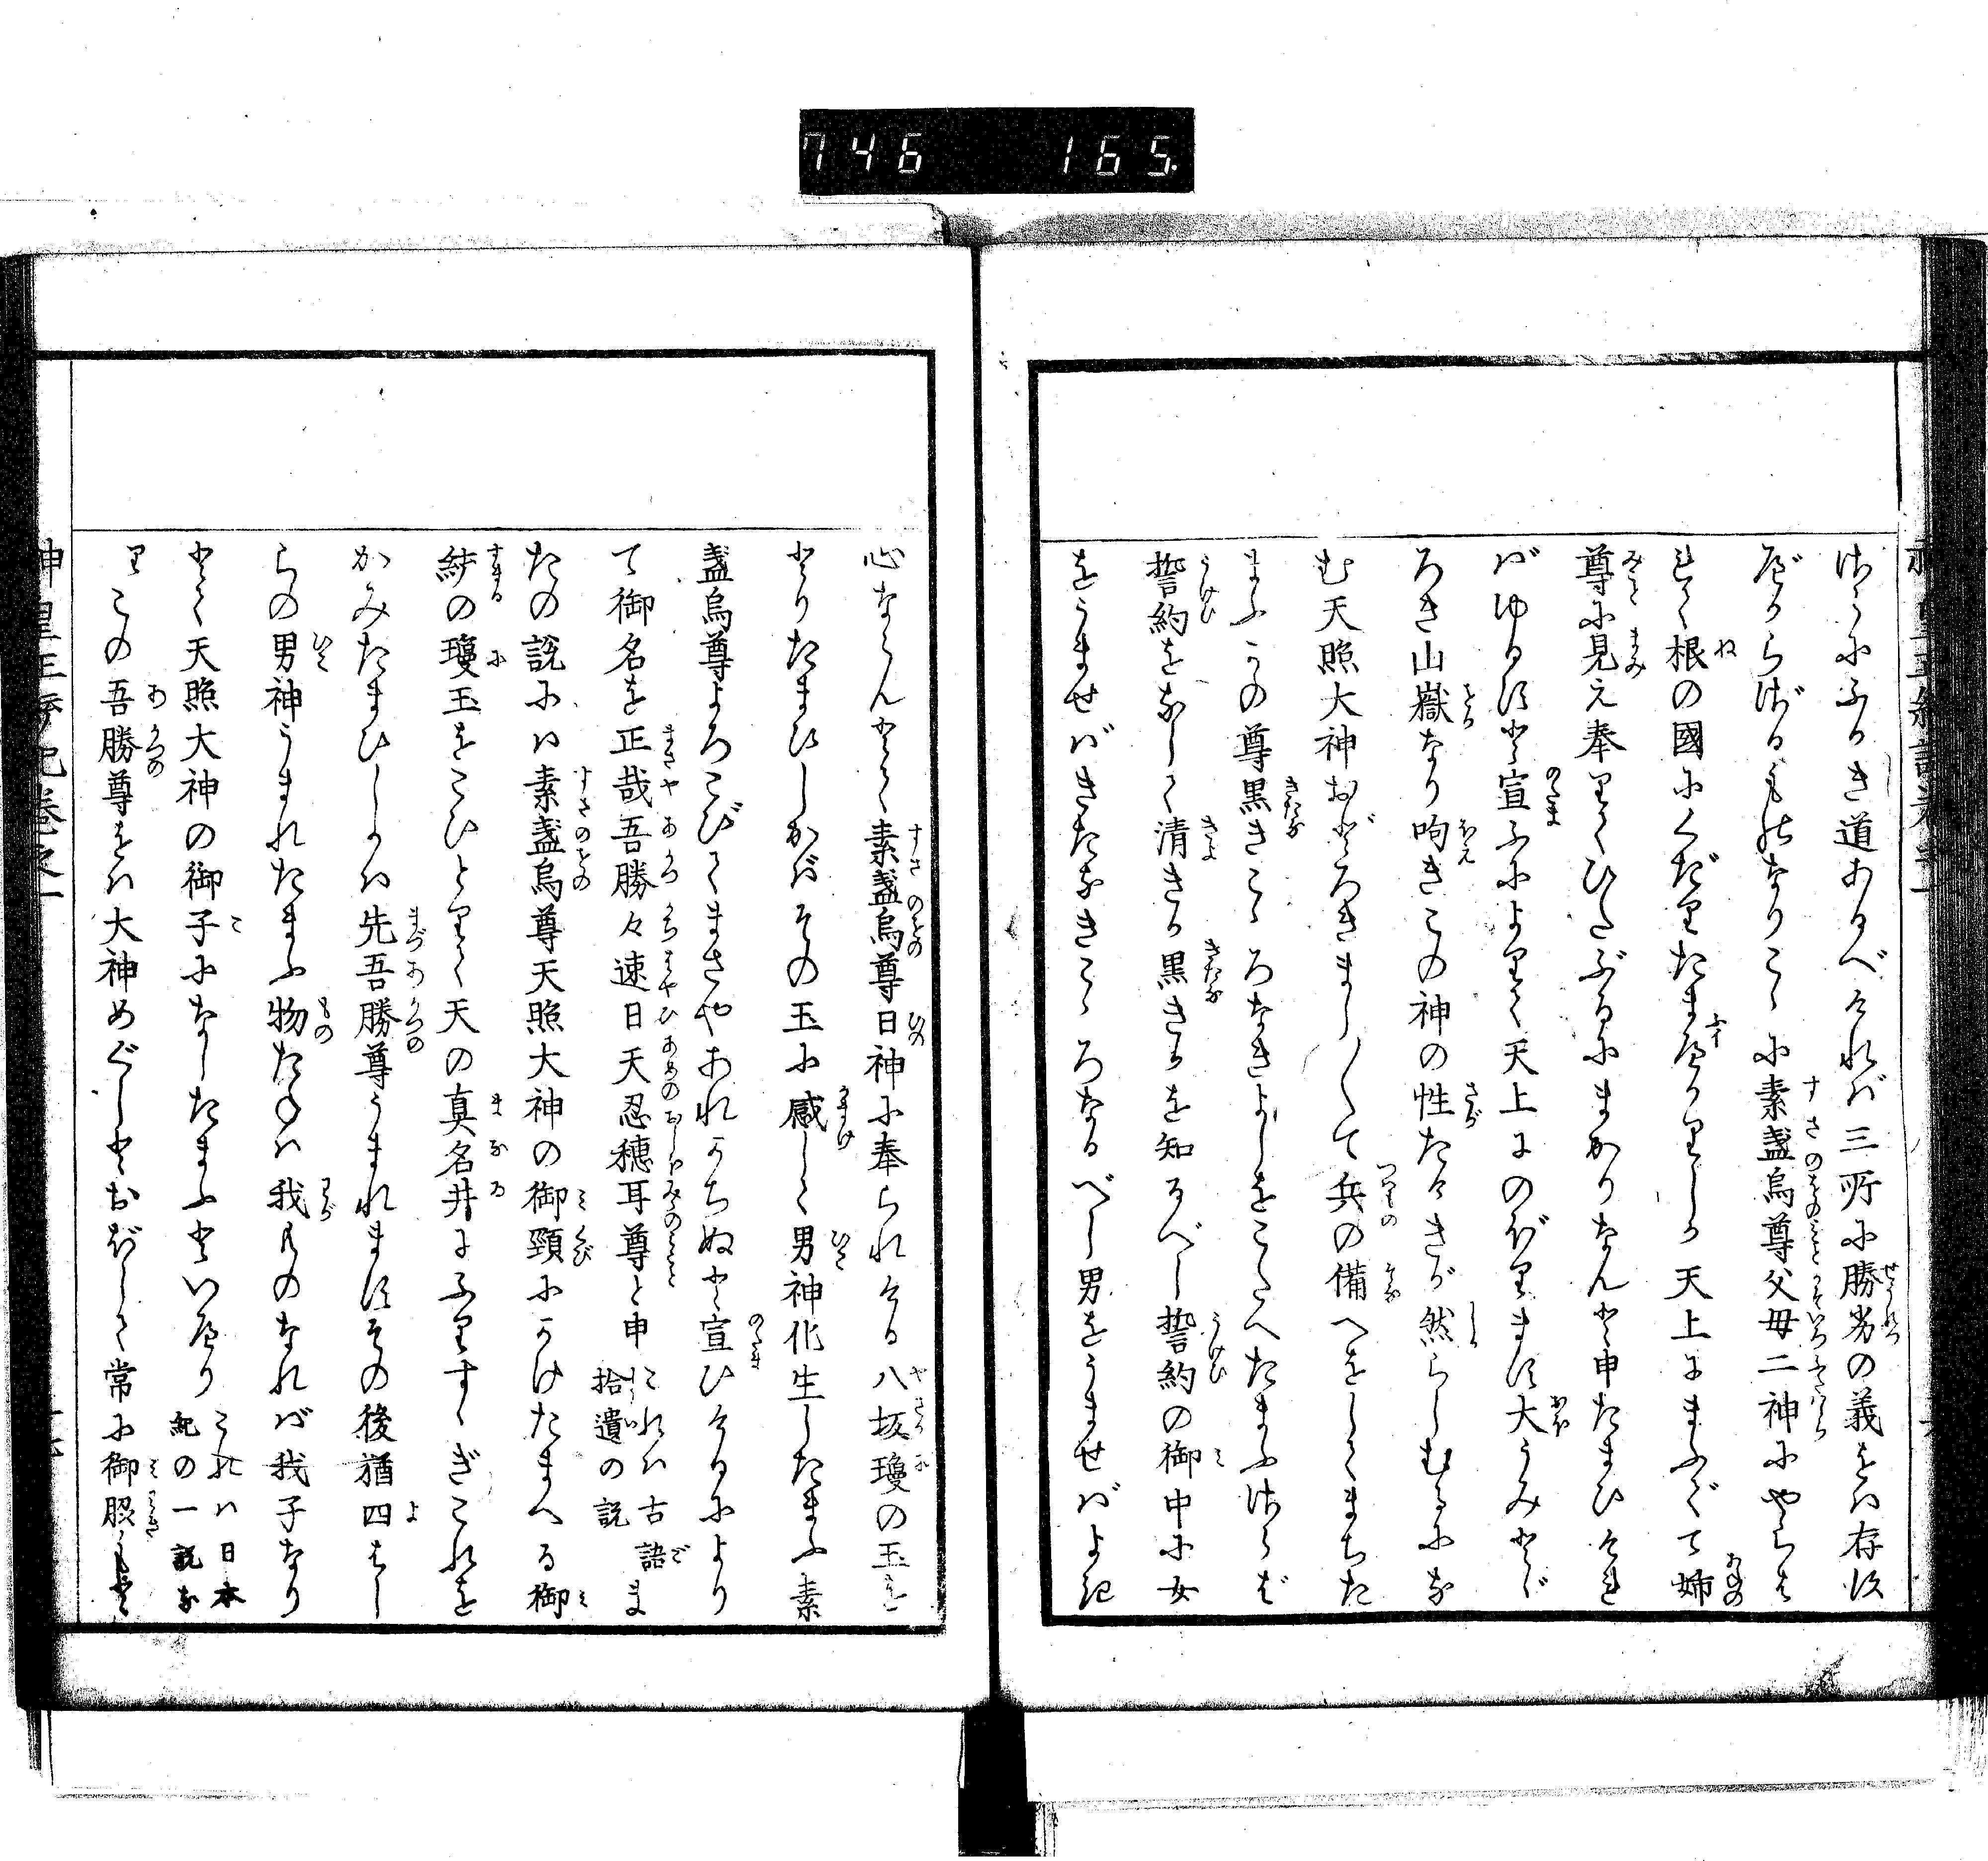 746 165
はうにふかき道あるべければ三所に勝劣の義をは存ず
べからざるものなりこゝに素盞烏尊父母二神にやらは
れて根の國にくだりたまへりしか天上にまふで丶姉
尊に見え奉りてひたぶるにまかりなんと申たまひけれ
ばゆるすと宣ふによりて天上にのぼります大うみとゞ
ろき山嶽なり吼きこの神の性たけきが然らしむるにな
む天照大神おどろきまし〱て兵の備へをしてまちた
まふかの尊黒きこゝろなきよしをこたへたまふさらば
誓約をなして清きか黒きかを知るべし誓約の御中に女
をうませばきたなきこゝろなるべし男をうませばよき
心ならんとて素盞烏尊日神に奉られける八坂瓊の玉を
とりたまひしかばその玉に感して男神化生したまふ素
盞烏尊よろこびてまさやあれかちぬと宣ひけるにより
て御名を正哉吾勝々速日天忍穂耳尊と申これは古語拾遺の説ま
たの説には素盞烏尊天照大神の御頸にかけたまへる御
統の瓊玉をこひとりて天の真名井にふりすゝぎこれを
かみたまひしかは先吾勝尊うまれますその後猶四はし
らの男神うまれたまふ物たねは我ものなれば我子なり
とて天照大神の御子になしたまふといへりこれは日本紀の一説な
りこの吾勝尊をは大神めぐしとおぼして常に御服もと
神皇正統記卷之一